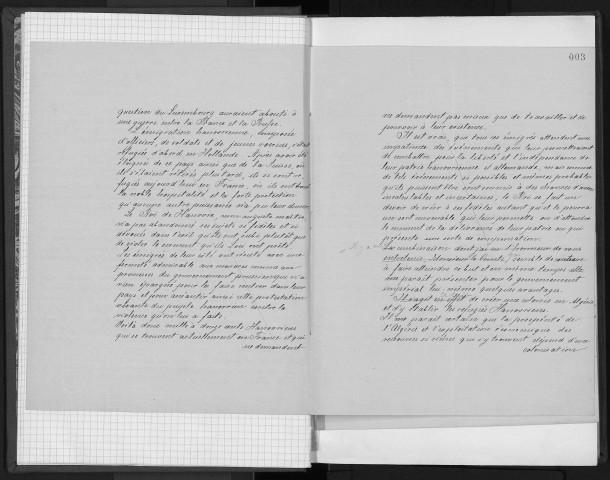 question du Luxembourg auraient abouti à
une guerre entre la France et la Prusse.
L'émigration hanovrienne, composée
d'officiers, de soldats et de jeunes recrues, s'était
réfugiée d'abord en Hollande. Après avoir été
éloignés de ce pays ainsi que de la Suisse où
ils s'étaient retirés plus tard, ils se sont ré-
fugiés aujourd'hui en France, où ils ont trouvé
la noble hospitalité et la forte protection
qu'aucune autre puissance n'a pu leur donner.
Le Roi de Hanovre, mon auguste maître
n'a pas abandonné ses sujets si fidèles et si
dévoués dans l'exil qu'ils ont subi plutôt que
de violer le serment qu'ils Lui ont prêté.
Ces émigrés de leur côté ont résisté avec une
fermeté admirable aux
promesses du gouvernement prussien qui n'a
rien épargné pour les faire rentrer dans leur
pays et pour anéantir ainsi cette protestation
vivante du peuple hanovrien contre la
violence qu'on lui a faite.
Voilà donc mille à douze cents Hanovriens
qui se trouvent actuellement en France et qui
ne demandent
003
ne demandent pas mieux que de travailler et de
pourvoir à leur existence.
Il est vrai, que tous ces émigrés attendent avec
impatience des événements qui leur permettraient
de combattre pour la liberté et l'indépendance de
leur patrie hanovrienne et allemande, mais comme
de tels événements si possibles et mêmes probables
qu'ils puissent être sont soumis à des chances d'avenir
incalculables et incertaines, le Roi se fait un
devoir de créer à ses fidèles autant qu'il le pourra
une vie convenable qui leur permette d'attendre
le moment de la délivrance de leur patrie ou qui
présente une sorte de compensation.
La combinaison dont j'ai eu l'honneur de vous
entretenir, Monsieur le Comte, semble de nature
à faire atteindre ce but et en même temps elle
me paraît présenter pour le gouvernement
impérial lui-même quelques avantages.
Il s'agit en effet de créer une colonie en Algérie
et d'y établir les réfugiés Hanovriens.
Il me paraît certain que la prospérité de
l'Algérie et l'exploitation économique des
richesses si riches qui s'y trouvent dépend d'une
colonisation